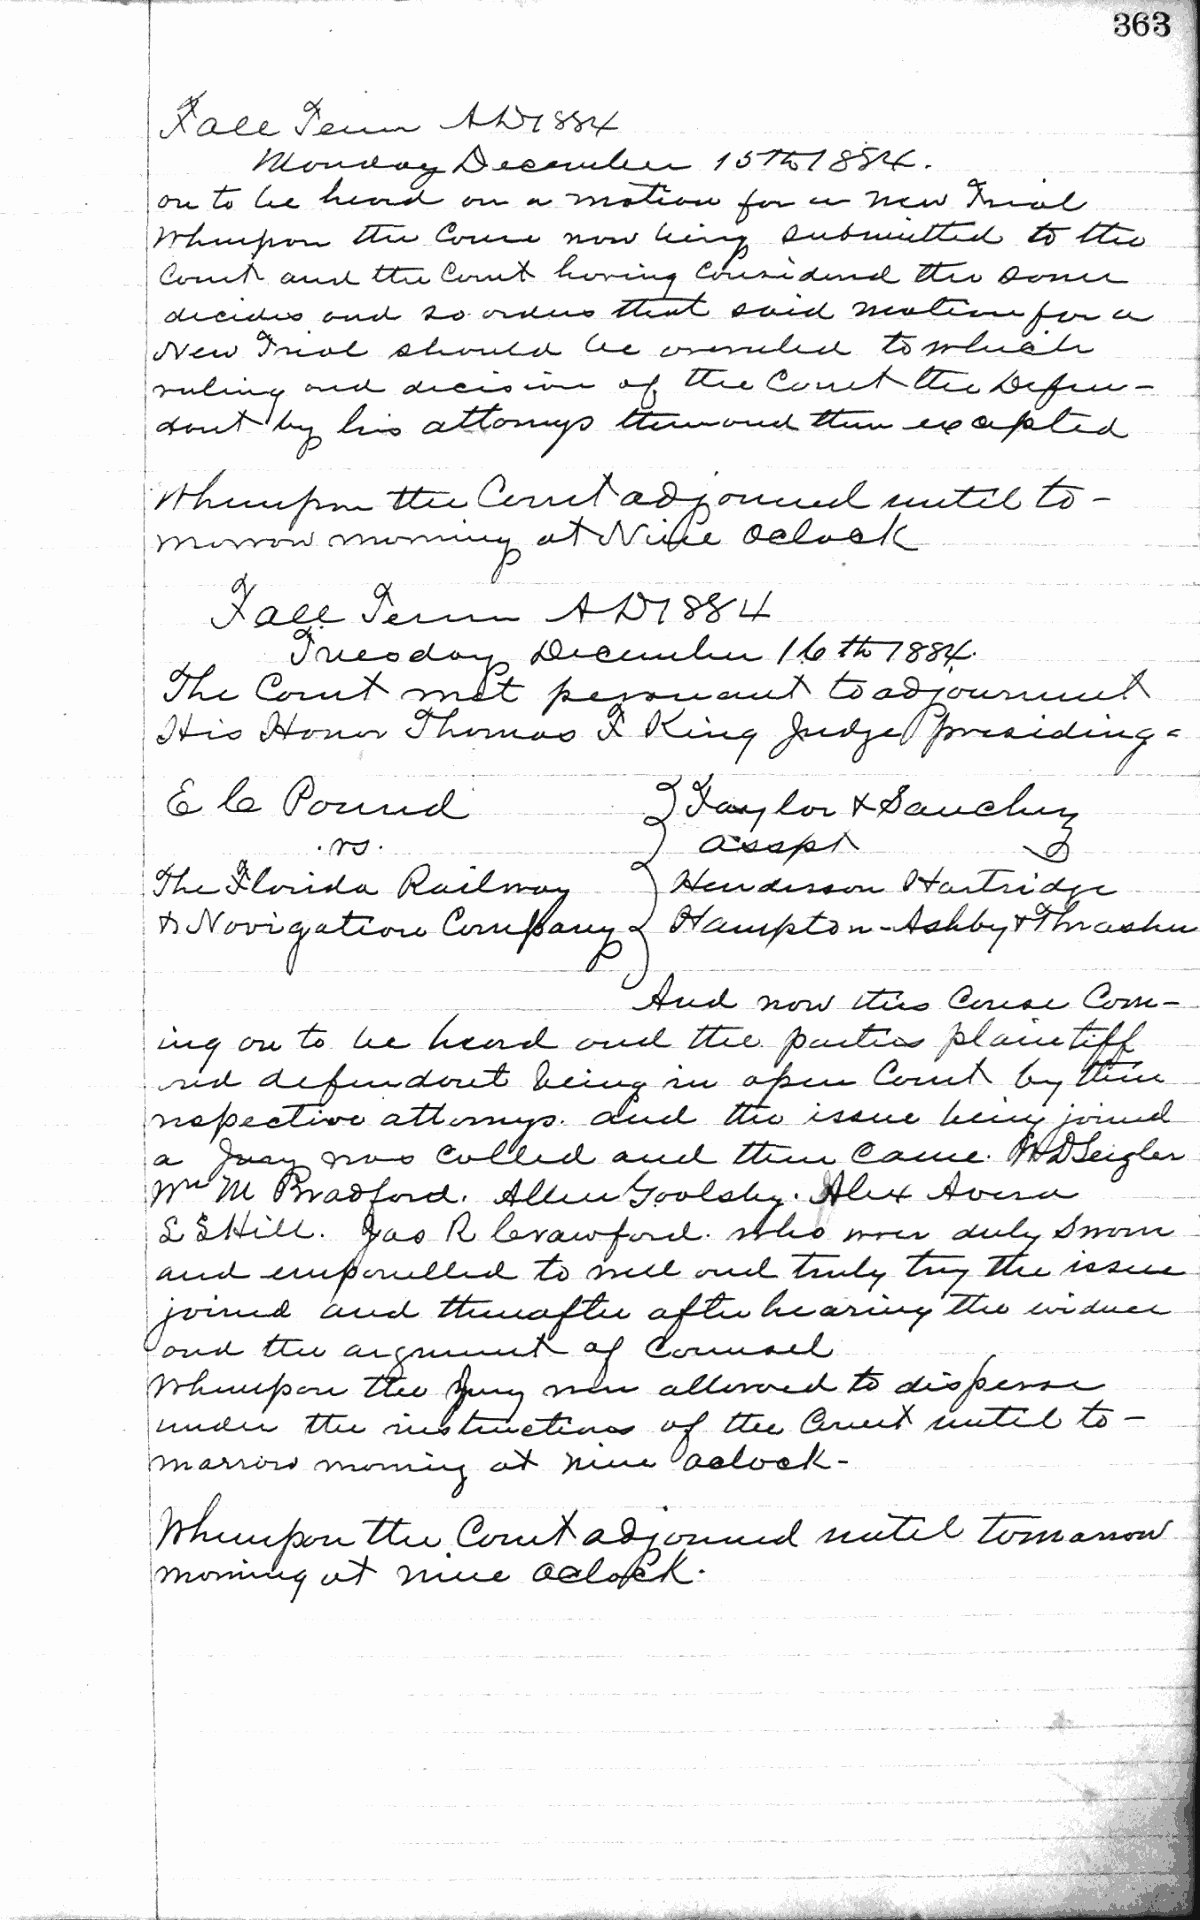 363
Fall Term AD 1884
Monday December 15th 1884.
on to be heard on a motion for a New Trial
Whereupon the Cause now being submitted to the
Court and the Court having Considered the same
decides and so orders that said motion for a
New Trial should be overruled to which
ruling and decision of the Court the Defen-
dant by his attorneys then and then excepted
Whereupon the Court adjourned until to-
morrow morning at Nine Oclock
Fall Term AD 1884
Tuesday December 16th 1884.
The Court met persuant to adjournment
His Honor Thomas F King Judge presiding-
E C Pound } Taylor & Sanchez
vs. } asspt
The Florida Railway } Henderson Hartridge
& Navigation Company } Hampton-Ashby & Thrasher
And now this Cause Com-
ing on to be heard and the parties plaintiff
and defendant being in open Court by their
respective attorneys. and the issue being joined
a Jury was Called and then Came. D Seigler
Wm M Bradford. Allen Goolsby. Alex Avera
L S Hill. Jas R Crawford. who were duly Sworn
and empanelled to well and truly try the issue
joined and thereafter after hearing the evidence
and the argument of Counsel
Whereupon the Jury were allowed to disperse
under the instructions of the Court until to-
marrow morning at nine oclock-
Whereupon the Court adjourned until tomarrow
morning at nine Oclock.